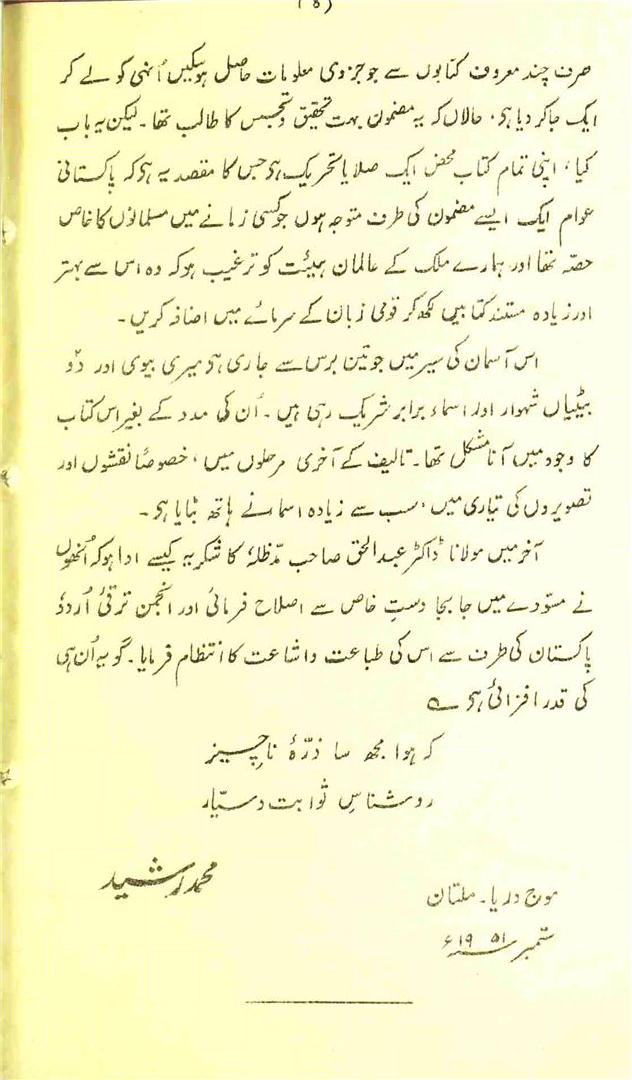 (۵)
صرف چند معروف کتابوں سے جو جزوی معلومات حاصل ہوسکیں اُنہی کو لے کر
ایک جا کر دیا ہے، حالاں کہ یہ مضمون بہت تحقیق و تجسس کا طالب تھا۔ لیکن یہ باب
کیا، اپنی تمام کتاب محض ایک صلایا تحریک ہے جس کا مقصد یہ ہے کہ پاکستانی
عوام ایک ایسے مضمون کی طرف متوجہ ہوں جو کسی زمانے میں مسلمانوں کا خاص
حصّہ تھا اور ہمارے ملک کے عالمان ہیئت کو ترغیب ہو کہ وہ اس سے بہتر
اور زیادہ مستند کتابیں لکھ کر قومی زبان کے سرمائے میں اضافہ کریں۔
اس آسمان کی سیر میں جو تین برس سے جاری ہے میری بیوی اور دو
بیٹیاں شہوار اور اسماء برابر شریک رہی ہیں۔ اُن کی مدد کے بغیر اس کتاب
کا وجود میں آنا مشکل تھا۔ تالیف کے آخری مرحلوں میں، خصوصاً نقشوں اور
تصویروں کی تیاری میں، سب سے زیادہ اسماء نے ہاتھ بٹایا ہے۔
آخر میں مولانا ڈاکٹر عبدالحق صاحب مدّظلہٗ کا شکریہ کیسے ادا ہو کہ اُنھوں
نے مسوّدے میں جا بجا دستِ خاص سے اصلاح فرمائی اور انجمن ترقیٔ اُردوٗ
پاکستان کی طرف سے اس کی طباعت و اشاعت کا انتظام فرمایا۔ گو یہ اُن ہی
کی قدر افزائی ہے ؎
کہ ہوا مجھ سا ذرّۂ ناچیز
روشناسِ ثوابت و سیّار
محمد رشید
موج دریا۔ ملتان
ستمبر ۱۹۵۱ء